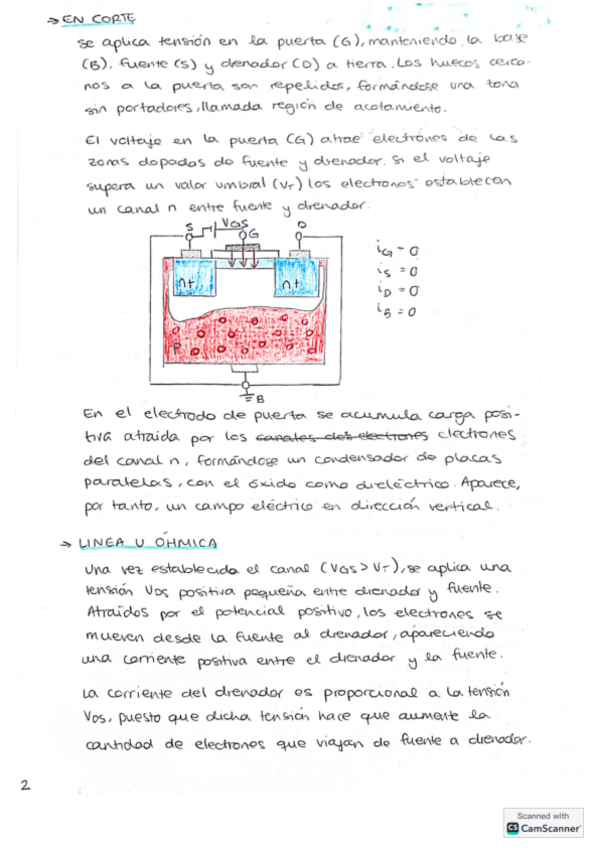 → EN CORTE
se aplica tensión en la puerta (G), manteniendo la base
(B), fuente (S) y drenador (D) a tierra. Los huecos cerca-
nos a la puerta son repelidos, formándose una zona
sin portadores, llamada región de acotamiento.
El voltaje en la puerta (G) atrae electrones de las
zonas dopadas de fuente y drenador. Si el voltaje
supera un valor umbral (VT) los electrones establecen
un canal n entre fuente y drenador.
S VGS G D
n+ n+
P
B
iG = 0
iS = 0
iD = 0
iB = 0
En el electrodo de puerta se acumula carga posi-
tiva atraida por los canales de electrones electrones
del canal n, formándose un condensador de placas
paralelas, con el óxido como dieléctrico. Aparece,
por tanto, un campo eléctrico en dirección vertical.
→ LINEA U ÓHMICA
Una vez establecido el canal (VGS > VT), se aplica una
tensión VDS positiva pequeña entre drenador y fuente.
Atraídos por el potencial positivo, los electrones se
mueven desde la fuente al drenador, apareciendo
una corriente positiva entre el drenador y la fuente.
La corriente del drenador es proporcional a la tensión
VDS, puesto que dicha tensión hace que aumente la
cantidad de electrones que viajan de fuente a drenador.
2
Scanned with
CS CamScanner